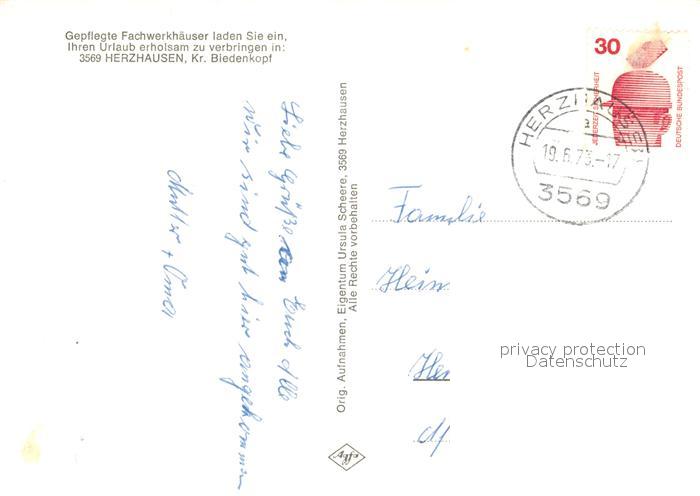 Gepflegte Fachwerkhäuser laden Sie ein,
Ihren Urlaub erholsam zu verbringen in:
3569 HERZHAUSEN, Kr. Biedenkopf
Liebe Grüße an Euch Alle
wir sind gut hier angekommen
Mutter + Oma
Orig. Aufnahmen, Eigentum Ursula Scheere, 3569 Herzhausen
Alle Rechte vorbehalten
Agfa
30
JEDERZEIT SICHERHEIT
DEUTSCHE BUNDESPOST
HERZHAUSEN
19.6.73.-17
3569
Familie
Hein
privacy protection
Datenschutz